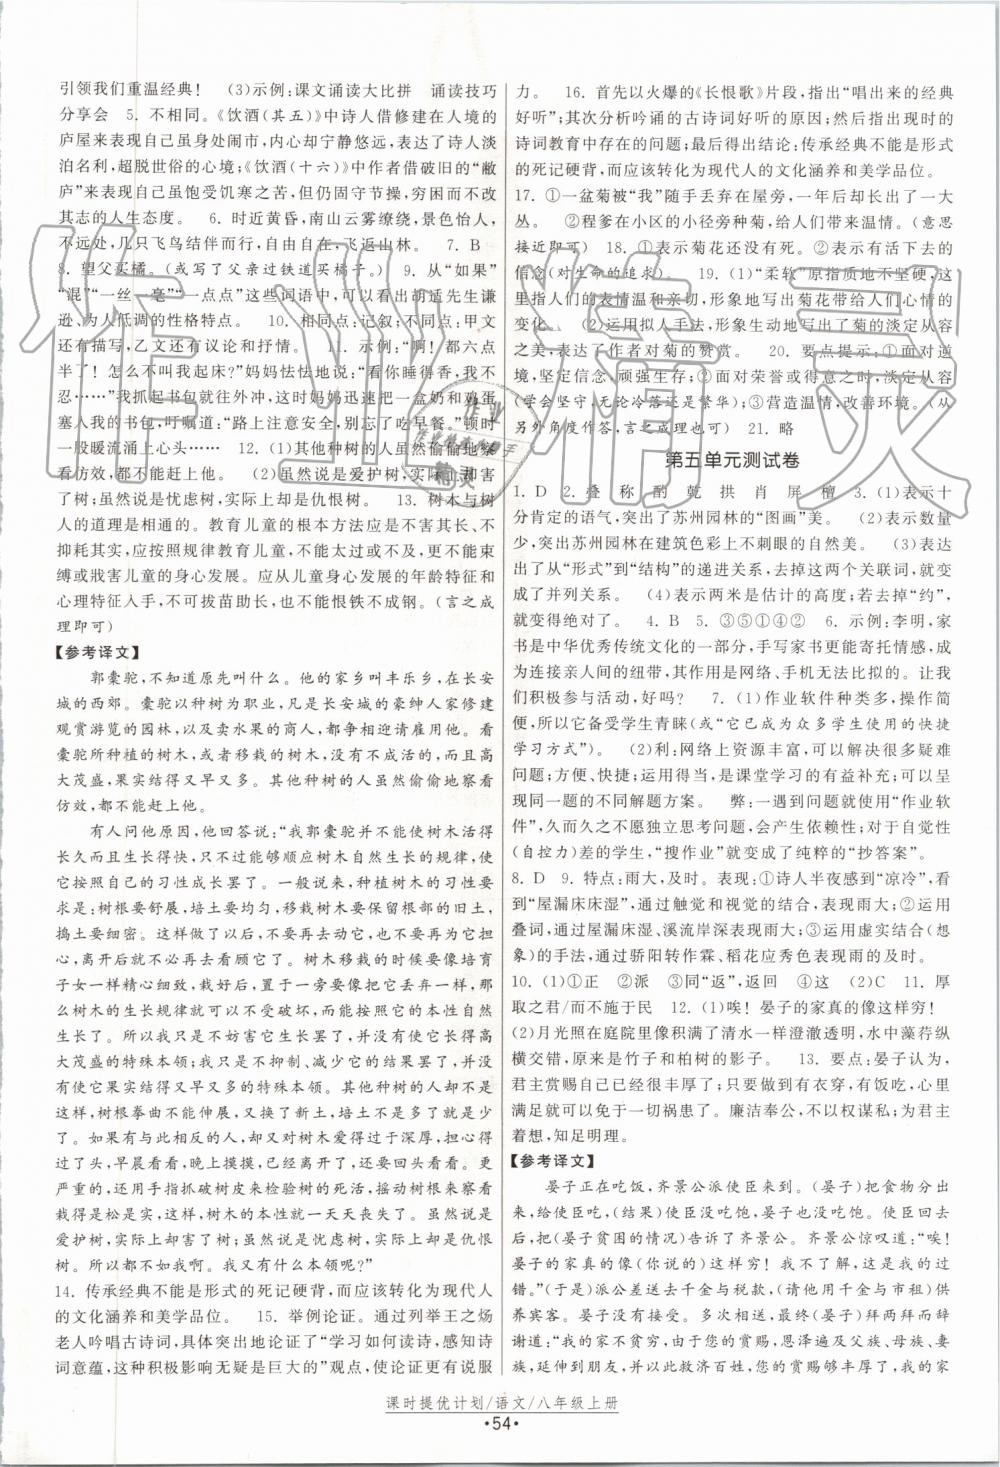 引领我们重温经典！　(3)示例：课文诵读大比拼　诵读技巧
分享会　5. 不相同。《饮酒(其五)》中诗人借修建在人境的
庐屋来表现自己虽身处闹市，内心却宁静悠远，表达了诗人淡
泊名利，超脱世俗的心境；《饮酒(十六)》中作者借破旧的“敝
庐”来表现自己虽饱受饥寒之苦，但仍固守节操，矢志不渝及
其志的人生态度。　6. 时近黄昏，南山云雾缭绕，景色怡人，
不远处，几只飞鸟结伴而行，自由自在，飞返山林。　7. B
8. 望父买橘。(或写了父亲过铁道买橘子。)　9. 从“如果”
“混”“一丝一毫”“一点点”这些词语中，可以看出胡适先生谦
逊、为人低调的性格特点。　10. 相同点：记叙；不同点：甲文
还有描写，乙文还有议论和抒情。　11. 示例：“啊！都六点
半了！怎么不叫我起床？”妈妈怯怯地说：“看你睡得香，我不
忍……”我抓起书包就往外冲，这时妈妈迅速把一盒奶和鸡蛋
塞入我的书包，叮嘱道：“路上注意安全，别忘了吃早餐。”顿时
一股暖流涌上心头……　12. (1)其他种树的人虽然偷偷地察
看仿效，都不能赶上他。　(2)虽然说是爱护树，实际上却害
了树；虽然说是忧虑树，实际上却是仇恨树。　13. 树木与树
人的道理是相通的。教育儿童的根本方法应是不干扰其长、不
抑耗其实，应按照规律教育儿童，不能太过干预，更不能束
缚或戕害儿童的身心发展。应从儿童身心发展的年龄特征和
心理特征入手，不可拔苗助长，也不能恨铁不成钢。(言之成
理即可)
【参考译文】
郭橐驼，不知道原先叫什么。他的家乡叫丰乐乡，在长安
城的西郊。橐驼以种树为职业，凡是长安城的豪绅人家修建
观赏游览的园林，以及卖水果的商人，都争相迎接雇用他。看
橐驼所种植的树木，或者移栽的树木，没有不活的，而且长得高
大茂盛，果实结得又早又多。其他种树的人虽然偷偷地察看
仿效，都不能赶上他。
有人问他原因，他回答说：“我郭橐驼并不能使树木活得
长久而且生长得快，只不过能够顺应树木自然生长的规律，使
它按照自己的习性成长罢了。一般说来，种植树木的习性要
求是：树根要舒展，培土要均匀，移栽树木要保留根部的旧土，
捣土要细密。这样做了以后，不要再去动它，也不要再去担心
它，离开以后就不必再去看顾它了。树木移栽的时候要像培育
子女一样精心细致，栽好后，置于一旁要像把它丢弃一样，那么
树木的生长规律就可以不受破坏，而能按照它的本性自然生
长了。所以我只是不妨害它生长，并没有能使它长得高
大茂盛的特殊本领；我只是不抑制、减少它的结果罢了，并没有能
使它果实结得又早又多的特殊本领。其他种树的人却不是
这样，树根拳曲不能伸展，又换了新土，培土不是多了就是少
了。如果有与此做法相反的人，却又对树木爱得过于深厚，担忧得
过了头，早晨看看，晚上摸摸，已经离开了，又回来看看。更
严重的，还用手指抓破树皮来检验树的死活，摇动树根来察看
栽得是松是实，这样，树木的本性就一天天丧失了。虽然说是
爱护树木，实际上却害了树木；虽然说是忧虑树，实际上却是仇
恨树。所以都不如我啊。我又有什么本领呢？”
14. 传承经典不能是形式的死记硬背，而应该转化为现代人
的文化涵养和美学品位。　15. 举例论证。通过列举王之炀
老人吟唱古诗词，具体突出地论证了“学习如何读诗，感知诗
词意蕴，这种积极影响无疑是巨大的”观点，使论证更有说服
力。　16. 首先以火爆的《长恨歌》片段，指出“唱出来的经典
好听”；其次分析吟诵的古诗词好听的原因；然后指出现时的
诗词教育中存在的问题；最后得出结论：传承经典不能是形式
的死记硬背，而应该转化为现代人的文化涵养和美学品位。
17. ①一盆菊被“我”随手丢弃在屋旁，一年后却长出了一大
丛。　②程爹在小区的小径旁种菊，给人们带来温情。(意思
接近即可)　18. ①表示菊花还没有死。②表示有活下去的
信念(对生命的追求)。　19. (1)“柔软”原指质地不坚硬，这
里指人们的表情温和亲切，形象地写出了菊花带给人们心情的
变化。　(2)运用拟人手法，形象生动地写出了菊的淡定从容
之美，表达了作者对菊的赞赏。　20. 要点提示：①面对逆
境，坚定信念、顽强生存；②面对荣誉或得意之时，淡定从容
(学会坚守，无论冷落还是繁华)；③营造温情，改善环境。(从
另外角度作答，言之成理也可)　21. 略
第五单元测试卷
1. D　2. 叠　称　酌　乾　拱　肖　屏　檀　3. (1)表示十
分肯定的语气，突出了苏州园林的“图画”美。　(2)表示数量
少，突出了苏州园林在建筑色彩上不刺眼的自然美。　(3)表达
出了从“形式”到“结构”的递进关系，去掉这两个关联词，就变
成了并列关系。　(4)表示两米是估计的高度；若去掉“约”，
就变得很确定。　4. B　5. ③⑤①④②　6. 示例：李明，家
书是中华优秀传统文化的一部分，手写家书更能寄托情感，成
为连接亲人间的纽带，其作用是网络、手机无法比拟的。让我
们积极参与活动，好吗？　7. (1)作业软件种类多，操作简
便，所以它备受学生青睐(或“它已成为众多学生使用的快捷
学习方式”)。　(2)利：网络上资源丰富，可以解决很多疑难
问题，方便、快捷；运用得好，是课堂学习的有益补充；可以呈
现同一题的不同解题方案。　弊：一遇到问题就使用“作业软
件”，久而久之不愿独立思考问题，会产生依赖性；对于自觉性
(自控力)差的学生，“搜作业”就变成了纯粹的“抄答案”。
8. D　9. 特点：雨大，及时。表现：①诗人半夜感到“凉冷”，看
到“屋漏床床湿”，通过触觉和视觉的结合，表现雨大；②运用
叠词，通过屋漏床床湿、溪流岸岸深表现雨大；③运用虚实结合(想
象)的手法，通过骄阳转作霖、稻花应秀色表现雨的及时。
10. (1)①正　②派　③同“返”，返回　④这　(2)C　11. 厚
取之君/而不施于民　12. (1)唉！晏子的家真的像这样穷！
(2)月光照在庭院里像积满了清水一样澄澈透明，水中藻荇纵
横交错，原来是竹子和柏树的影子。　13. 要点：晏子认为，
君主赏赐自己已经很丰厚了，做到了有衣穿，有饭吃，心里
满足了就可以免于一切祸患了。廉洁奉公，不以权谋私；为君主
着想，知足明理。
【参考译文】
晏子正在吃饭，齐景公派使臣来到。(晏子)把食物分出
来，给使臣吃，(结果)使臣没吃饱，晏子也没吃饱。使臣回去
后，把(晏子贫困的情况)告诉了齐景公。齐景公惊叹道：“唉！
晏子的家真的像(你说的)这样穷！我不了解，这是我的过
错。”于是派公差送去千金与税款，(请他用千金与市租)供
养宾客。晏子没有接受。多次相送，最终(晏子)拜两拜而
谢道：“我的家不贫穷，由于您的赏赐，恩泽遍及父族、母族、妻
族，延伸到朋友，并以此救济百姓，您的赏赐够丰厚了，我的家
课时提优计划/语文/八年级上册
·54·
作业精灵